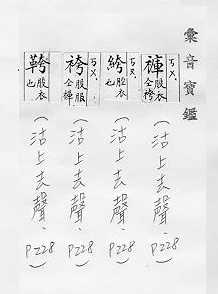 彙音寶鑑
ㄎㄨ
褲 股衣 仝袴
(沽上去聲、P228)
ㄎㄨ
絝 股衣也
(沽上去聲、P228)
ㄎㄨ
袴 股服 仝褲
(沽上去聲、P228)
股衣也
(沽上去聲、P228)